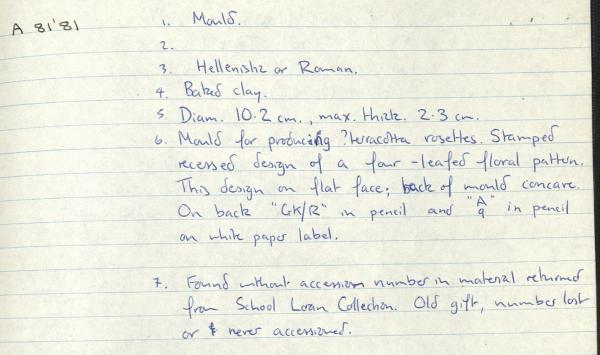 A 81'81
1. Mould.
2.
3. Hellenistz or Roman.
4. Baked clay.
5. Diam. 10.2 cm., max. thick. 2.3 cm.
6. Mould for producing ?terracotta rosettes. Stamped
recessed design of a four-leafed floral pattern.
This design on flat face; back of mould concave.
On back "GK/R" in pencil and "A
9" in pencil
on white paper label.
7. Found without accession number in material returned
from School Loan Collection. Old gift, number lost
or never accessioned.